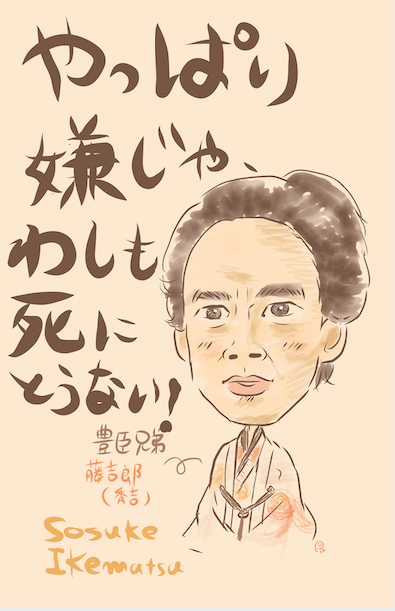 やっぱり
嫌じゃ、
わしも
死に
とうない!
豊臣兄弟
藤吉郎
(秀吉)
Sosuke
Ikematsu